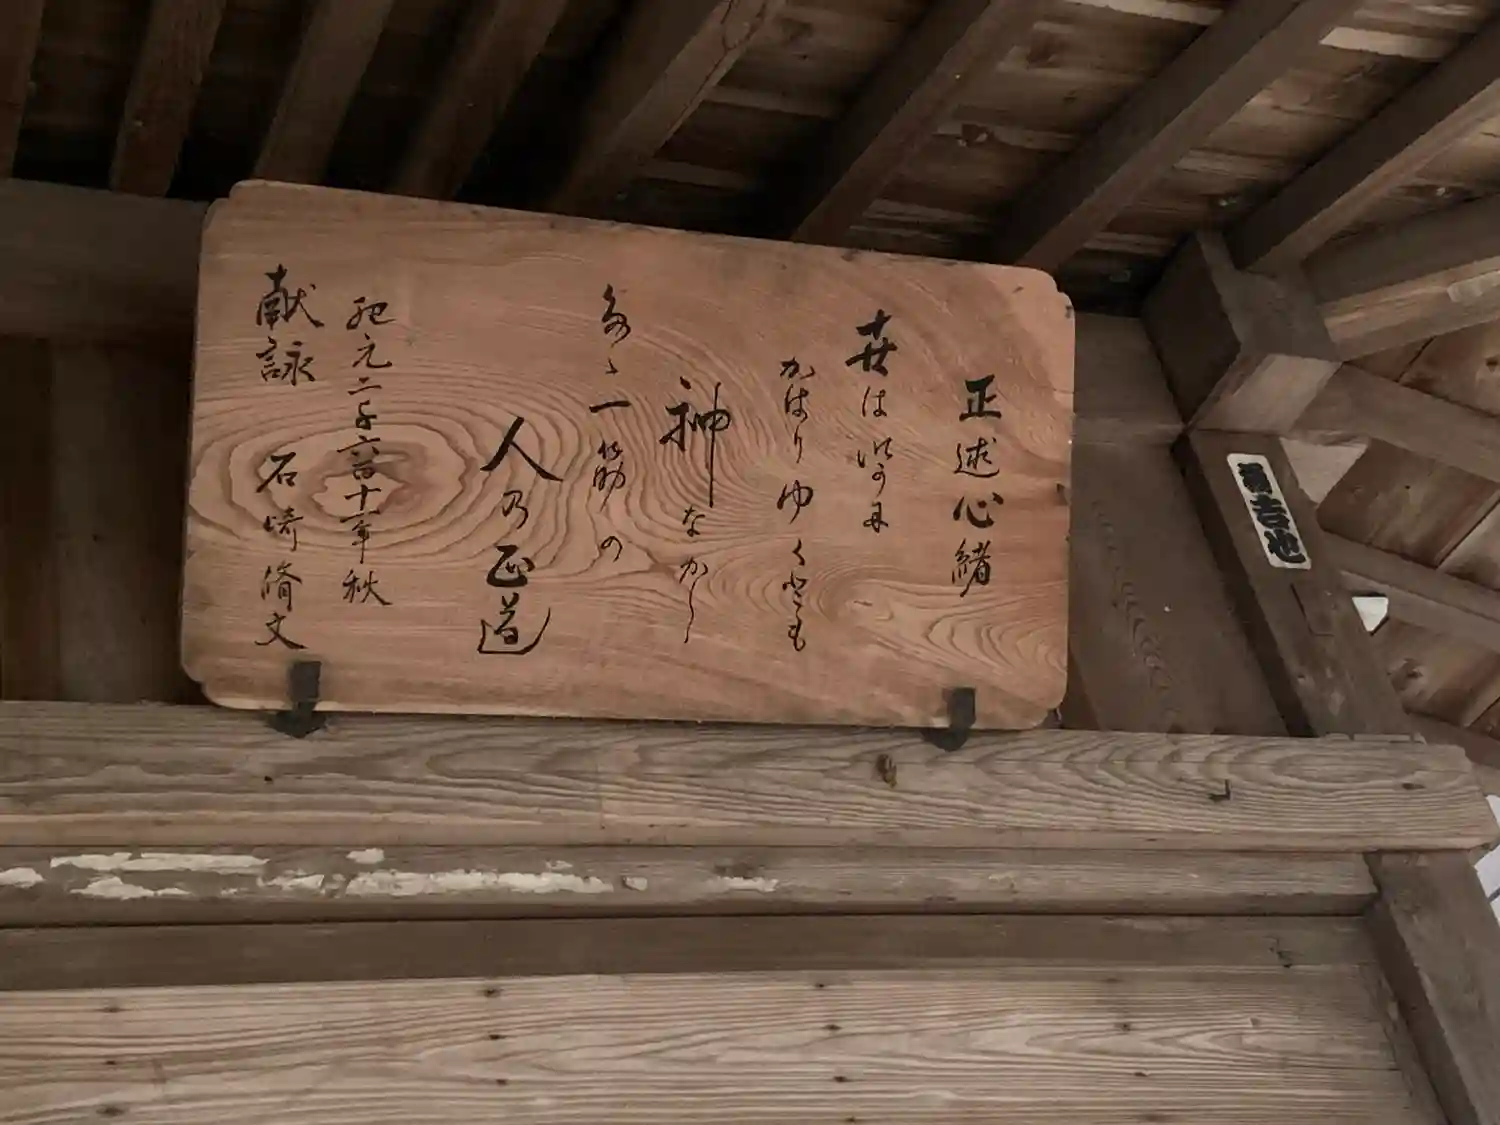 正述心緒
世はいかに
かはりゆくとも
神なから
たゝ一筋の
人乃正道
紀元二千六百十年秋
献詠 石崎脩文